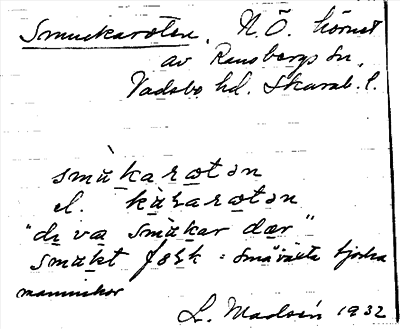 Smuckaroten, N.Ö. hörnet
av Ransbergs sn,
Vadsbo hd. Skarab. l.
smùkarꝍtən
el. kàraroten
"di va smùkar dær"
smukt folk = småväxta tjocka
manniskor
L. Madsén 1932